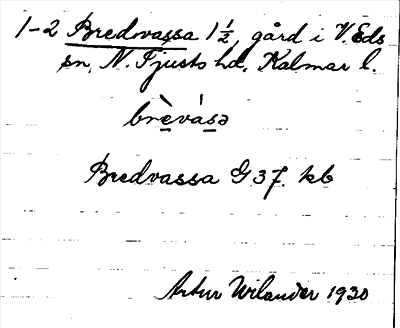 1-2 Bredvassa 1½, gård i V. Eds
sn, N. Tjusts hd, Kalmar l.
brèvása
Bredvassa G 37. kb
Artur Wilander 1930